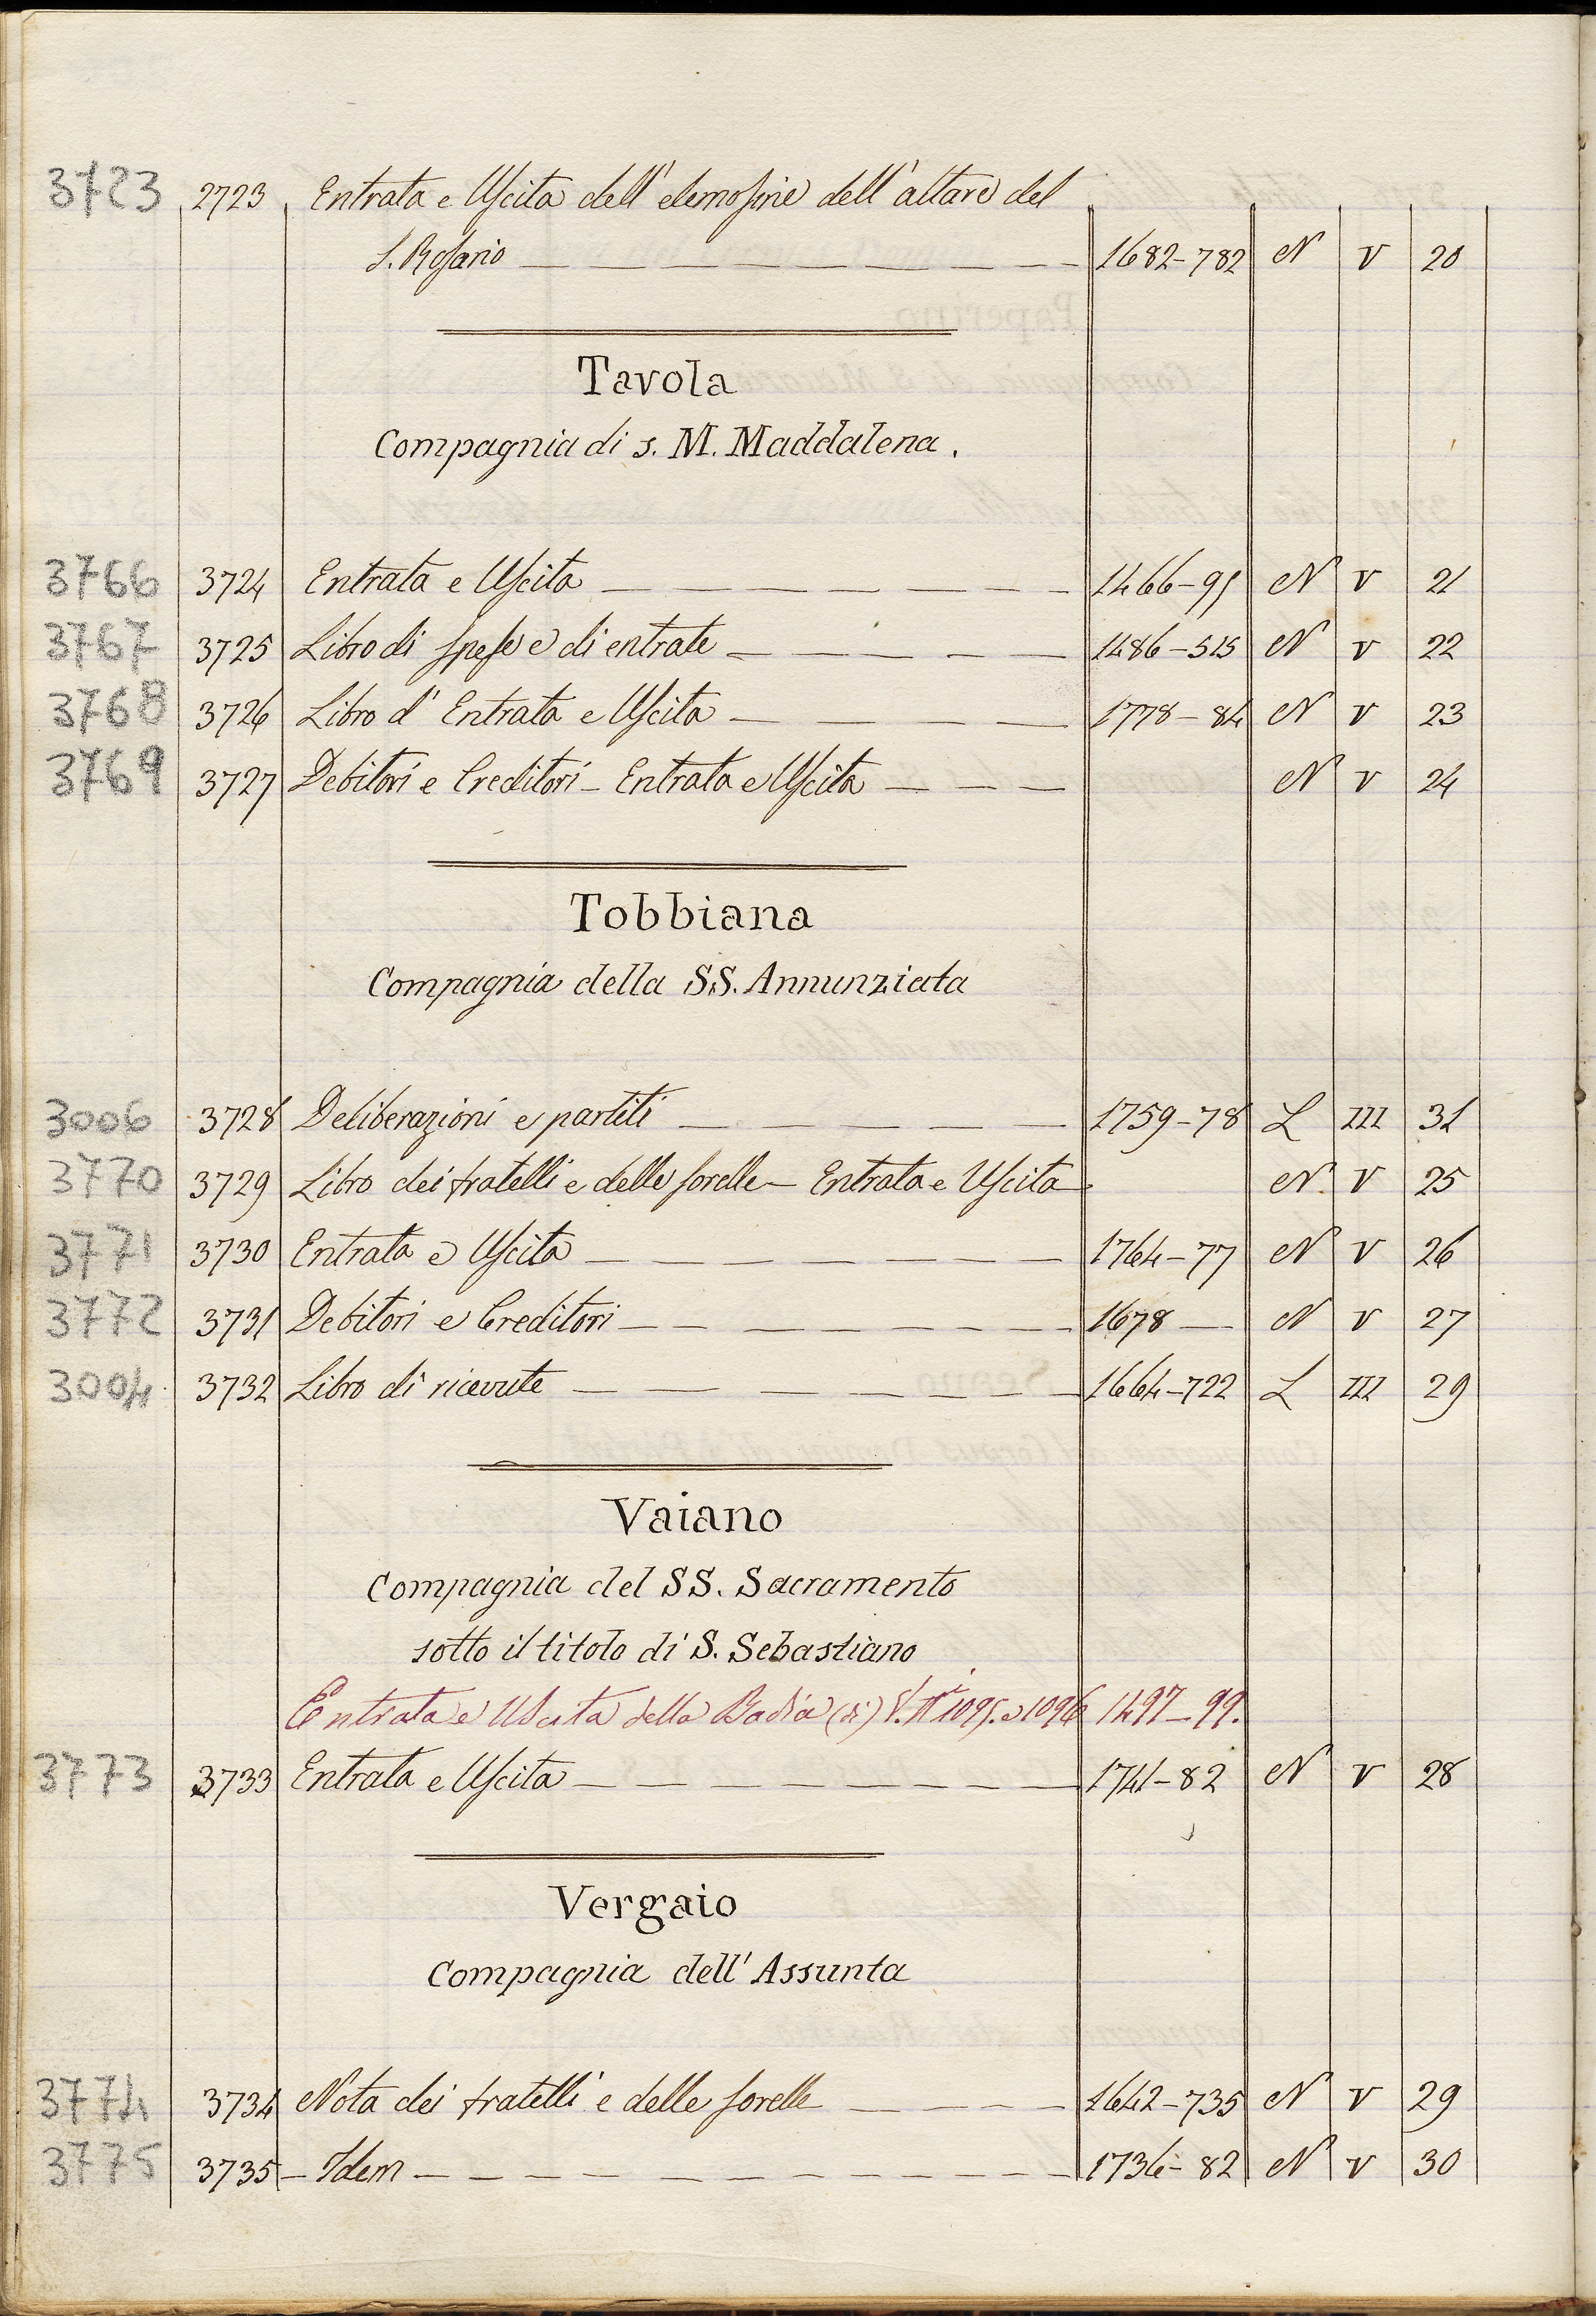 3723 2723 Entrata e Uscita dell'elemosine dell'altare del
S. Rosario 1682-782 N V 20
Tavola
Compagnia di s. M. Maddalena.
3766 3724 Entrata e Uscita 1466-95 N V 21
3767 3725 Libro di spese e di entrate 1486-515 N V 22
3768 3726 Libro d'Entrata e Uscita 1778-84 N V 23
3769 3727 Debitori e Creditori - Entrata e Uscita N V 24
Tobbiana
Compagnia della SS. Annunziata
3006 3728 Deliberazioni e partiti 1759-78 L III 31
3770 3729 Libro dei fratelli e delle sorelle - Entrata e Uscita N V 25
3771 3730 Entrata e Uscita 1764-77 N V 26
3772 3731 Debitori e Creditori 1678 — N V 27
3004 3732 Libro di ricevute 1664-722 L III 29
Vaiano
Compagnia del SS. Sacramento
sotto il titolo di S. Sebastiano
Entrata e Uscita della Badia (di) V. Nⁱ 1095. e 1096 1497-99.
3773 3733 Entrata e Uscita 1741-82 N V 28
Vergaio
Compagnia dell'Assunta
3774 3734 Nota dei fratelli e delle sorelle 1642-735 N V 29
3775 3735 - Idem 1736-82 N V 30